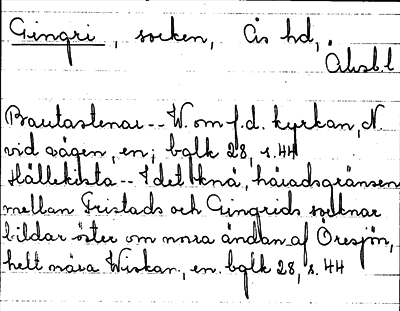 Gingri, socken, Ås hd,
Älvsb.l
Bautastenar -- W. om f.d. kyrkan, N
vid vägen, en, bglk 28, s. 44
Hällekista -- I det knä, häradsgränsen
mellan Fristads och Gingrids socknar
bildar öster om norra ändan af Öresjön,
helt nära Wiskan, en. bglk 28, s. 44